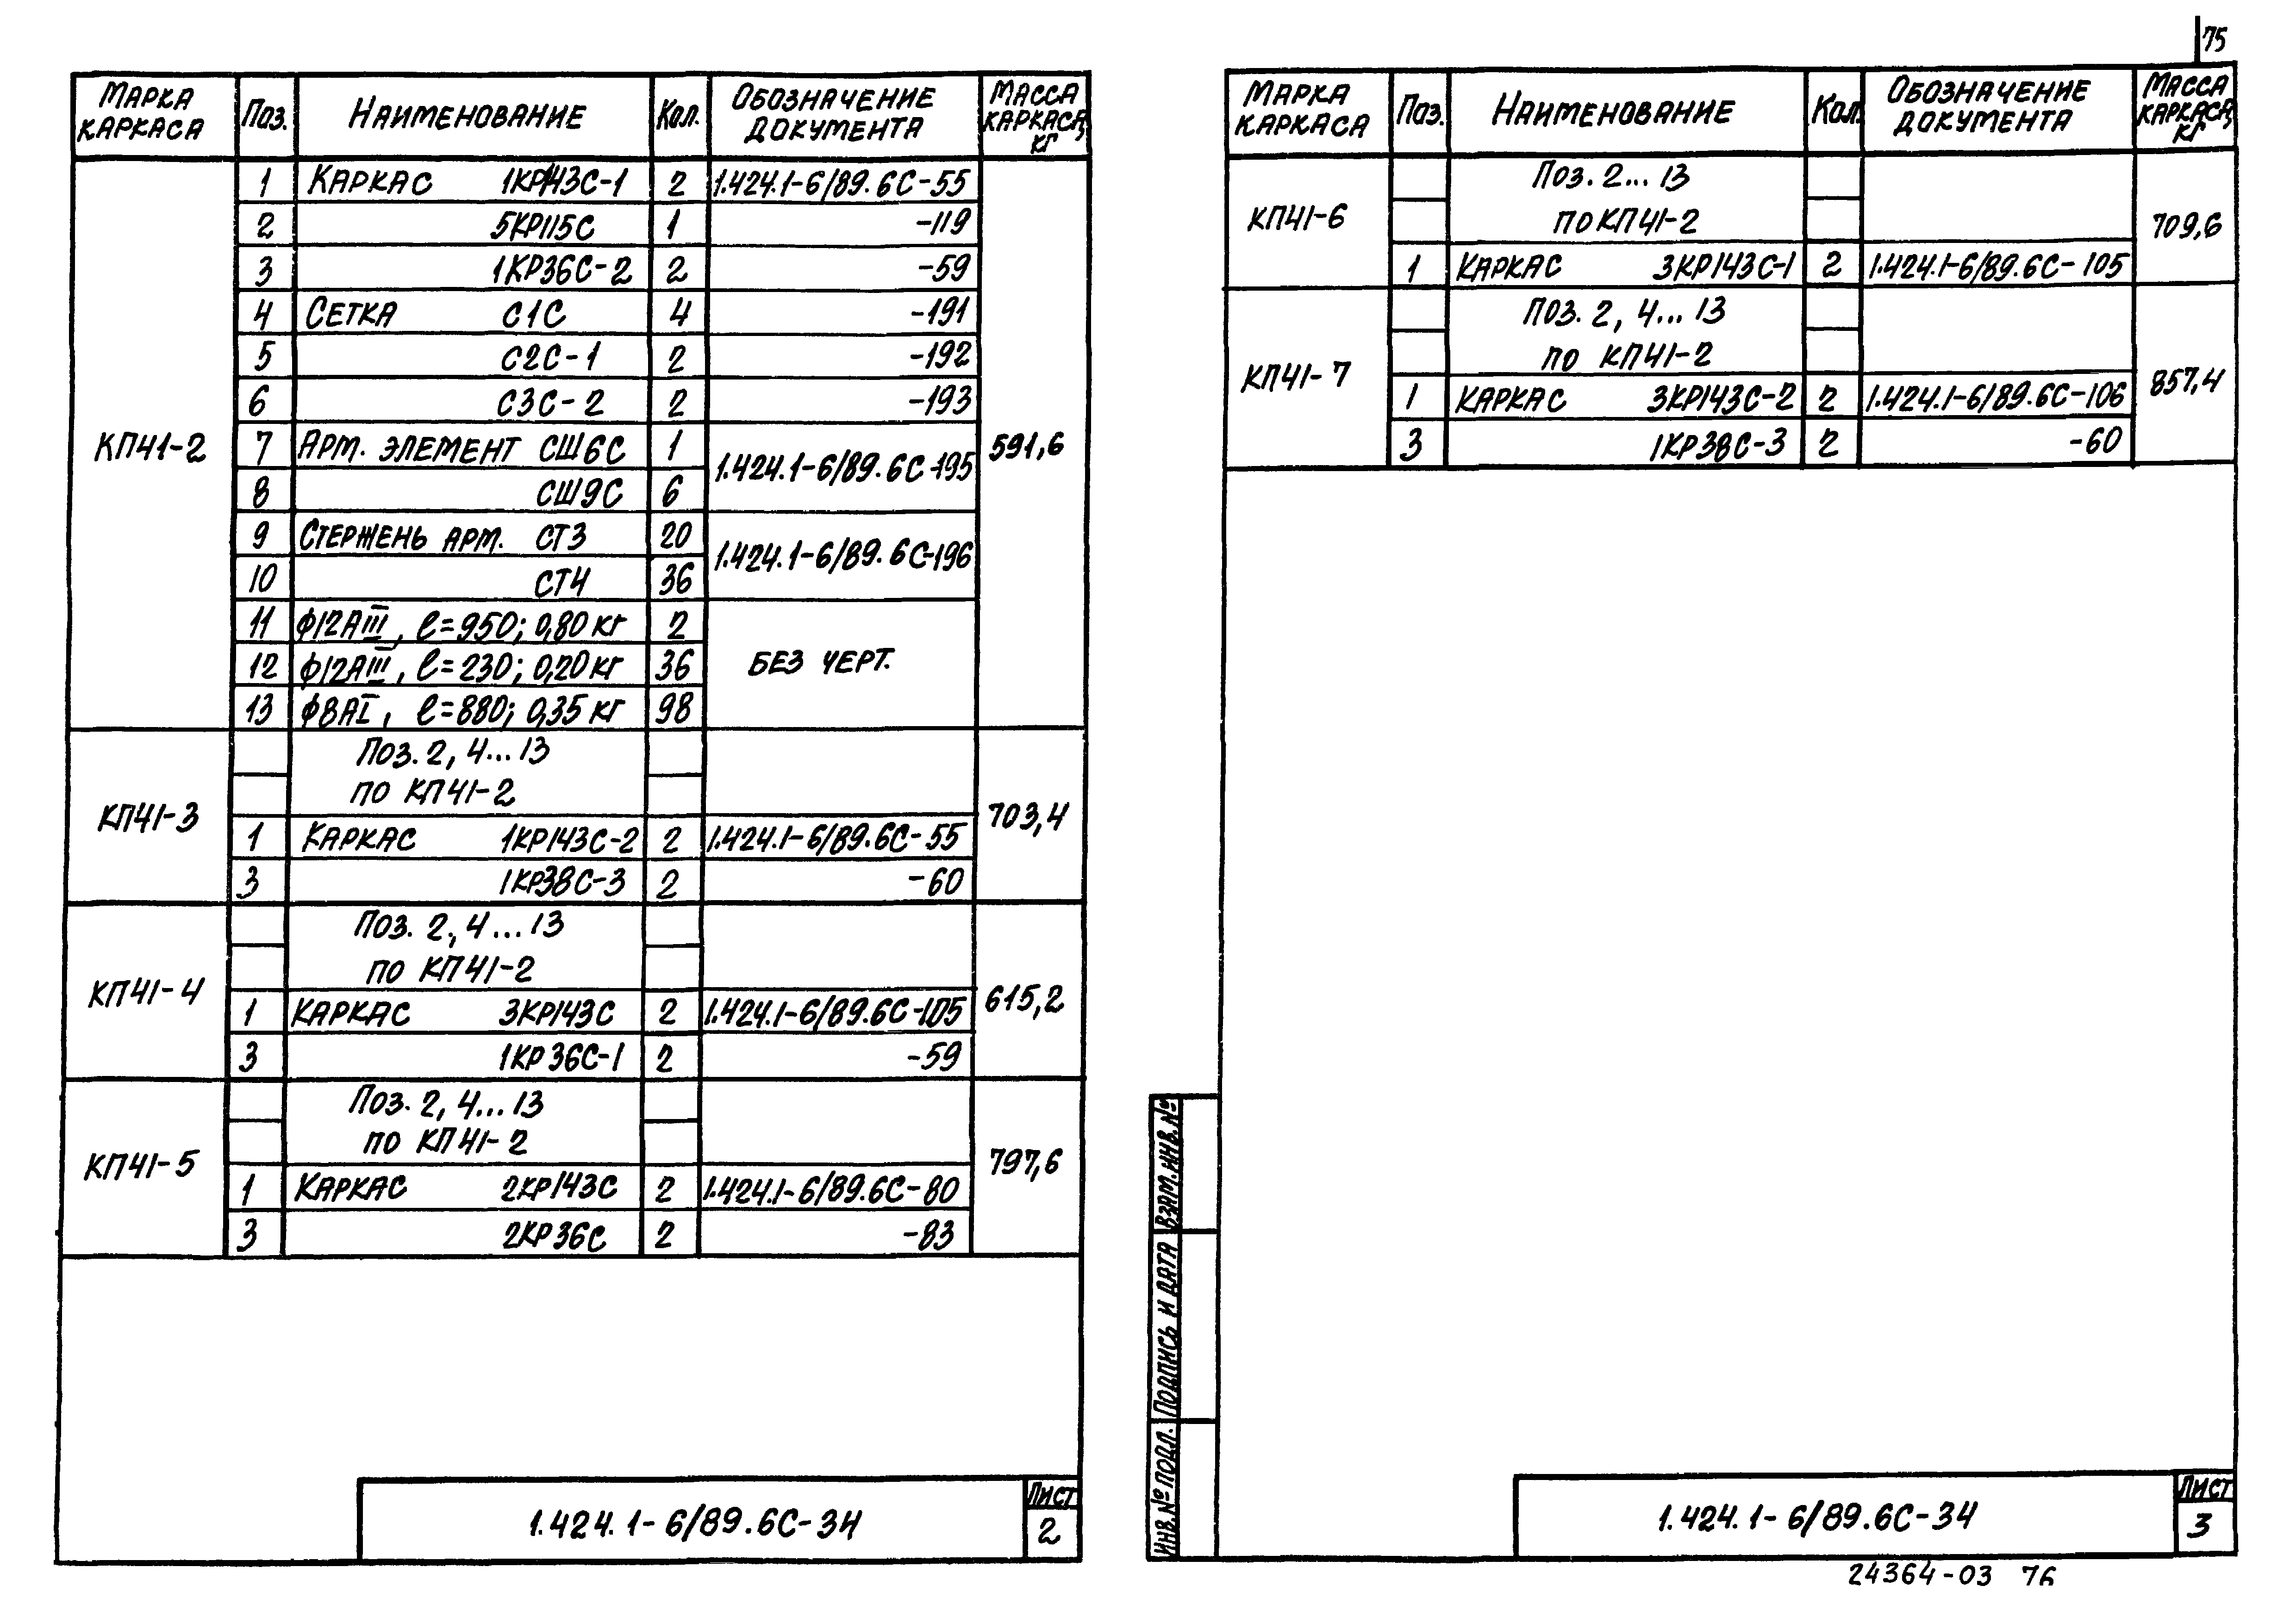 75
Марка каркаса Поз. Наименование Кол. Обозначение документа Масса каркаса, кг
КП41-2 591,6
1 Каркас 1КР143С-1 2 1.424.1-6/89.6С-55
2 5КР115С 1 -119
3 1КР36С-2 2 -59
4 Сетка С1С 4 -191
5 С2С-1 2 -192
6 С3С-2 2 -193
7 Арм. элемент СШ6С 1 1.424.1-6/89.6С-195
8 СШ9С 6
9 Стержень арм. СТ3 20 1.424.1-6/89.6С-196
10 СТ4 36
11 ф12АIII, ℓ=950; 0,80 кг 2
12 ф12АIII, ℓ=230; 0,20 кг 36 без черт.
13 ф8АI, ℓ=880; 0,35 кг 98
КП41-3 703,4
Поз. 2, 4...13
по КП41-2
1 Каркас 1КР143С-2 2 1.424.1-6/89.6С-55
3 1КР38С-3 2 -60
КП41-4 615,2
Поз. 2, 4...13
по КП41-2
1 Каркас 3КР143С 2 1.424.1-6/89.6С-105
3 1КР36С-1 2 -59
КП41-5 797,6
Поз. 2, 4...13
по КП41-2
1 Каркас 2КР143С 2 1.424.1-6/89.6С-80
3 2КР36С 2 -83
1.424.1-6/89.6С-34
Лист
2
Марка каркаса Поз. Наименование Кол. Обозначение документа Масса каркаса, кг
КП41-6 709,6
Поз. 2...13
по КП41-2
1 Каркас 3КР143С-1 2 1.424.1-6/89.6С-105
КП41-7 857,4
Поз. 2, 4...13
по КП41-2
1 Каркас 3КР143С-2 2 1.424.1-6/89.6С-106
3 1КР38С-3 2 -60
Взам.инв.№
Подпись и дата
Инв.№ подл.
1.424.1-6/89.6С-34
Лист
3
24364-03 76